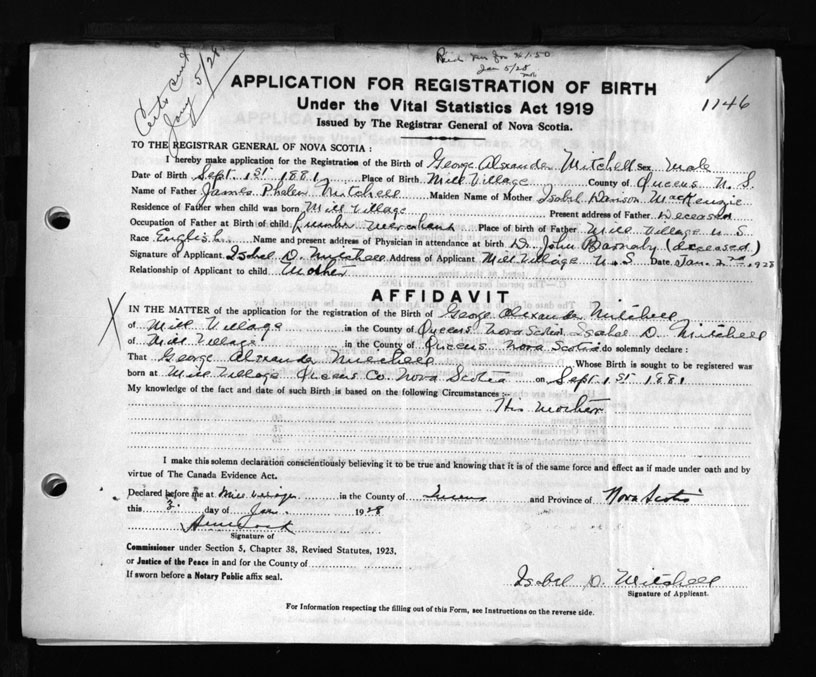 Jany 5/28
Jan 5/28
APPLICATION FOR REGISTRATION OF BIRTH
1146
Under the Vital Statistics Act 1919
Issued by The Registrar General of Nova Scotia.
TO THE REGISTRAR GENERAL OF NOVA SCOTIA :
I hereby make application for the Registration of the Birth of George Alexander Mitchell Sex Male
Date of Birth Sept. 1st 1881 Place of Birth Mill Village County of Queens N. S.
Name of Father James Phelen Mitchell Maiden Name of Mother Isabel Dawson MacKenzie
Residence of Father when child was born Mill Village Present address of Father Deceased
Occupation of Father at Birth of child Lumber Merchant Place of birth of Father Mill Village N. S
Race English Name and present address of Physician in attendance at birth Dr. John Barnaby (deceased)
Signature of Applicant Isabel D. Mitchell Address of Applicant Mill Village N. S Date Jan. 2nd 1928
Relationship of Applicant to child Mother
AFFIDAVIT
X
IN THE MATTER of the application for the registration of the Birth of George Alexander Mitchell
of Mill Village in the County of Queens Nova Scotia Isabel D. Mitchell
of Mill Village in the County of Queens Nova Scotia do solemnly declare :
That George Alexander Mitchell Whose Birth is sought to be registered was
born at Mill Village Queens Co. Nova Scotia on Sept. 1st 1881
My knowledge of the fact and date of such Birth is based on the following Circumstances :-
His Mother
I make this solemn declaration conscientiously believing it to be true and knowing that it is of the same force and effect as if made under oath and by
virtue of The Canada Evidence Act.
Declared before me at Mill Village in the County of Queens and Province of Nova Scotia
this 3 day of Jan. 1928
Signature of
Commissioner under Section 5, Chapter 38, Revised Statutes, 1923.
or Justice of the Peace in and for the County of
If sworn before a Notary Public affix seal.
Isabel D. Mitchell
Signature of Applicant.
For Information respecting the filling out of this Form, see Instructions on the reverse side.